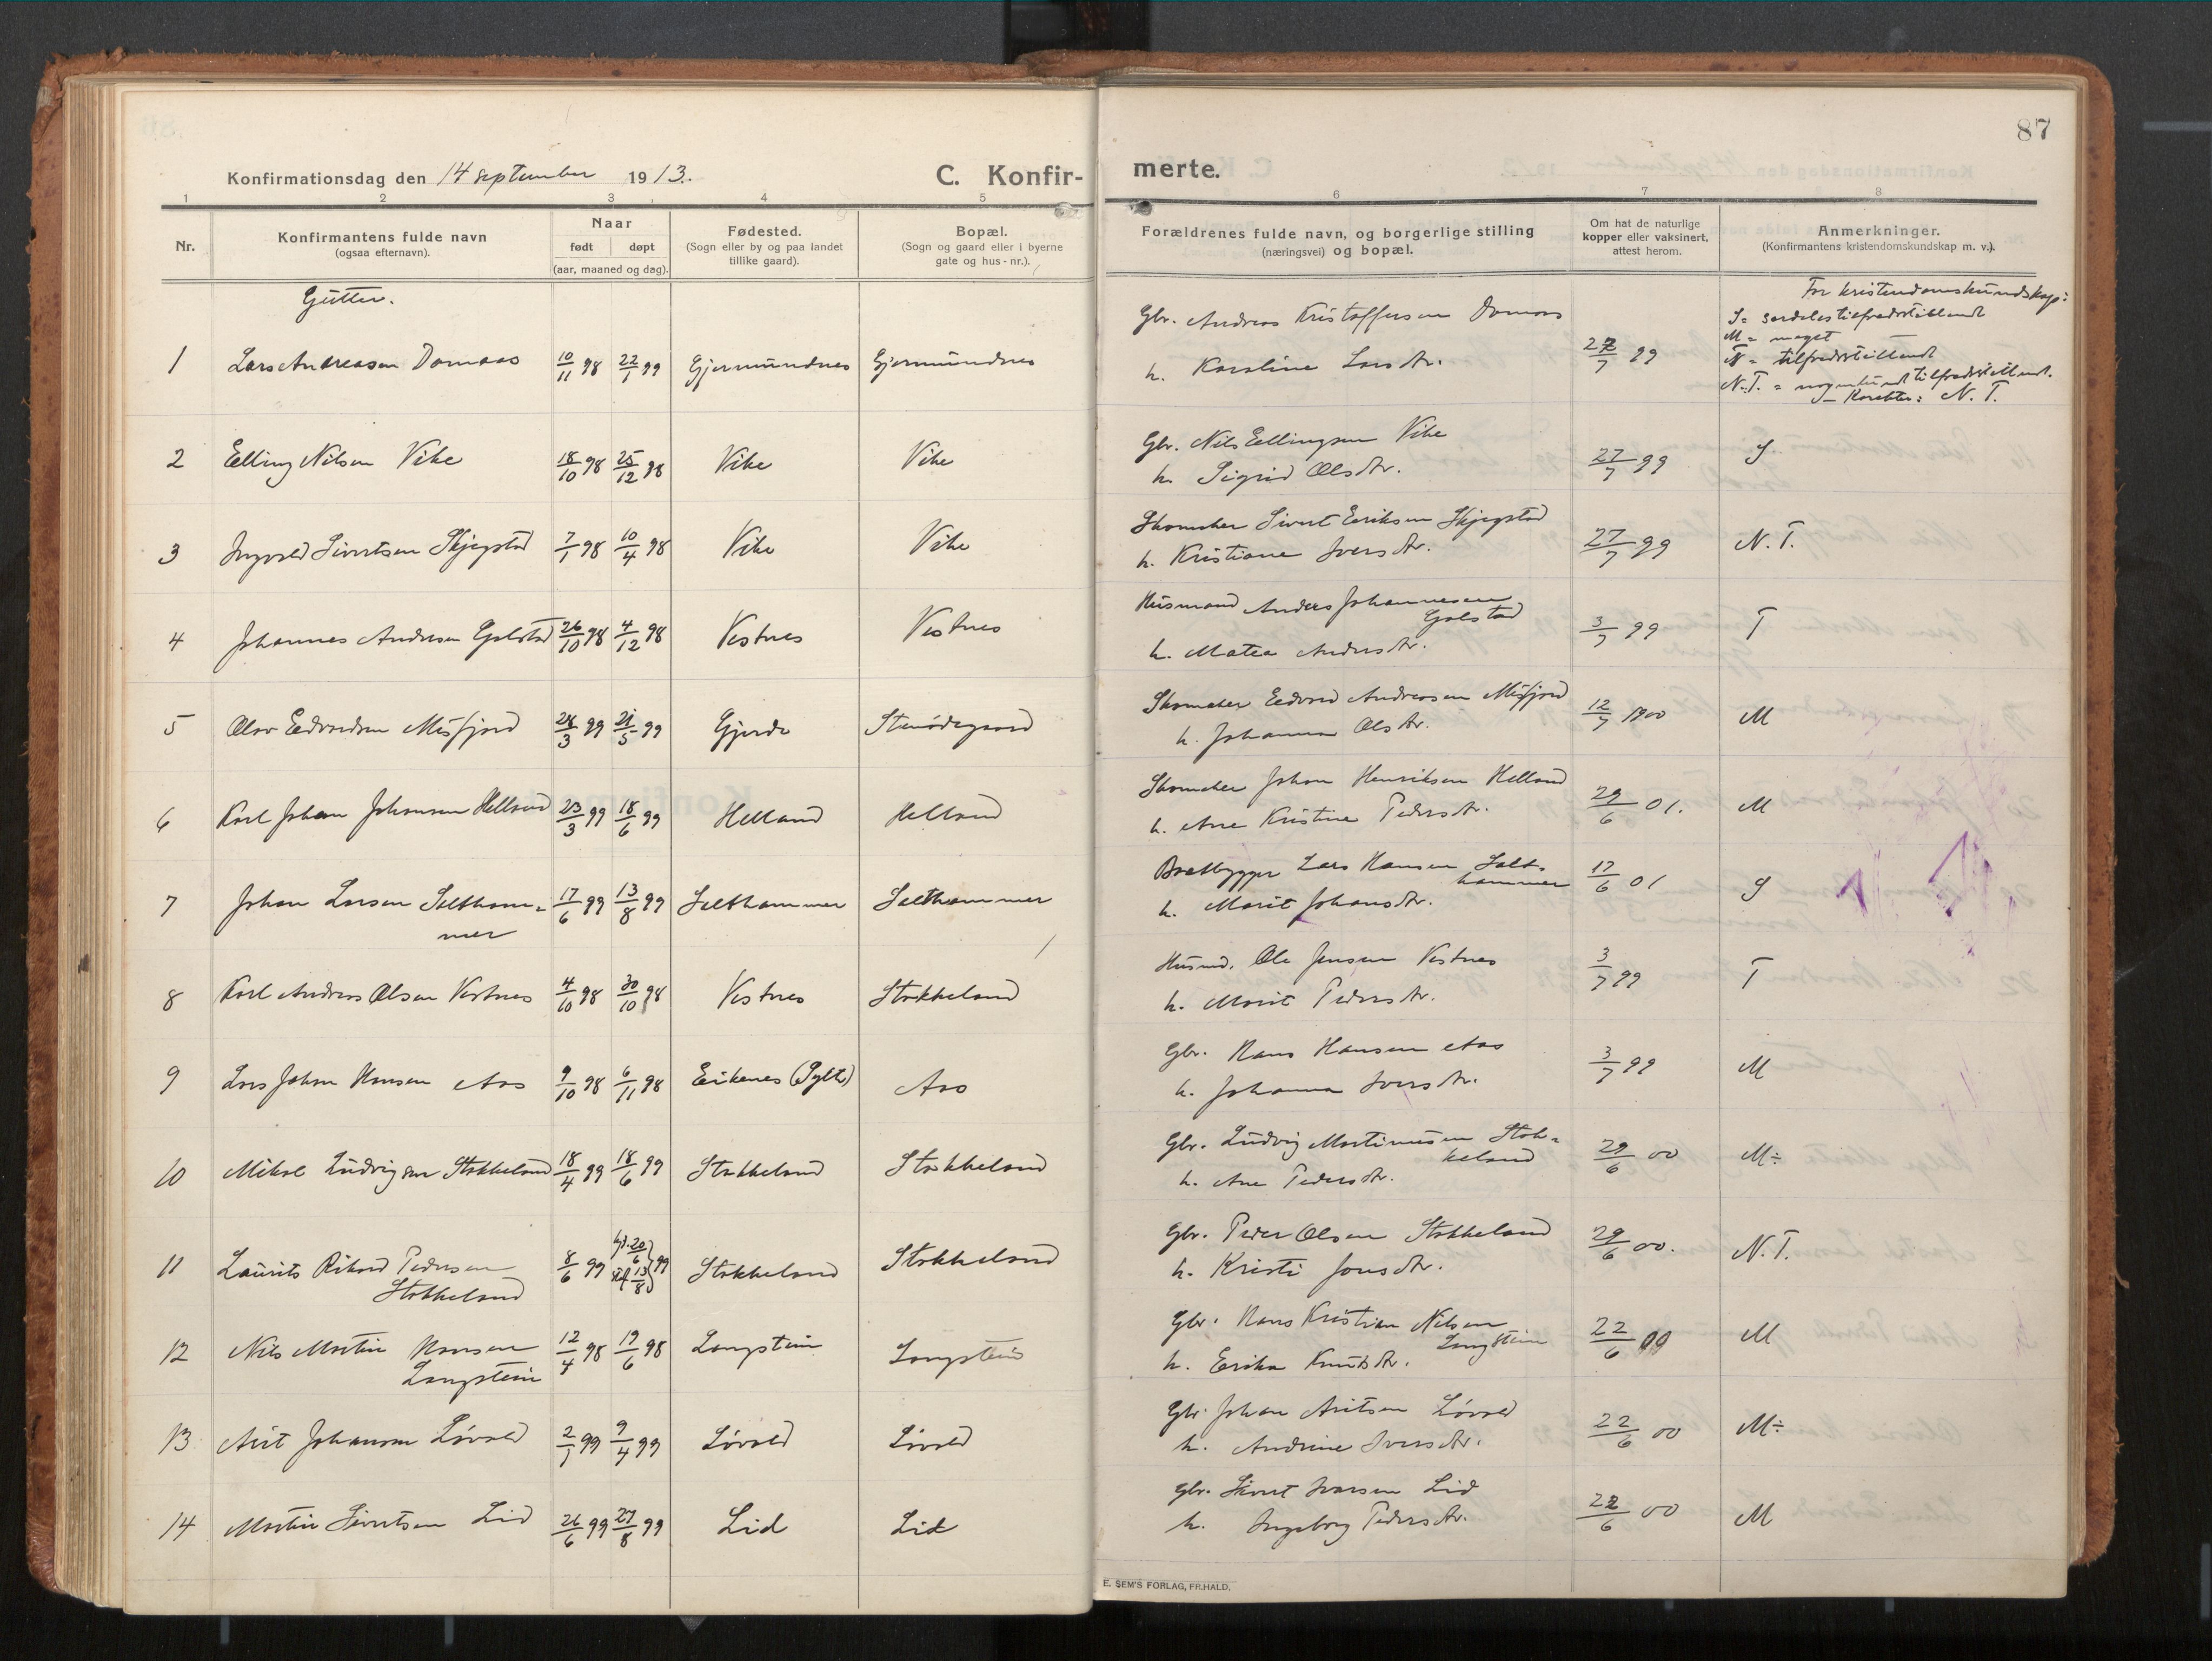 87
Konfirmationsdag den 14 september 1913.
C. Konfir-
merte.
1 2 3 4 5 6 7 8
Nr.
Konfirmantens fulde navn
(ogsaa efternavn).
Naar
født døpt
(aar, maaned og dag).
Fødested.
(Sogn eller by og paa landet
tillike gaard).
Bopæl.
(Sogn og gaard eller i byerne
gate og hus-nr.).
Forældrenes fulde navn, og borgerlige stilling
(næringsvei) og bopæl.
Om hat de naturlige
kopper eller vaksinert,
attest herom.
Anmerkninger.
(Konfirmantens kristendomskundskap m. v.).
Gutter.
For kristendomskundskap:
S = serdeles tilfredsstillende
M = meget —
T = tilfredsstillende
N.T. = nogenlunde tilfredsstillende.
1 Lars Andreasen Domaas 10/11 98 22/1 99 Gjermundnes Gjermundnes
Gbr. Andreas Kristoffersen Domaas
h. Karoline Larsdtr.
27/7 99
Karakter: N. T.
2 Elling Nilsen Vike 18/10 98 25/12 98 Vike Vike
Gbr. Nils Ellingsen Vike
h. Sigrid Olsdtr.
27/7 99 S
3 Ingvald Sivertsen Skjegstad 7/1 98 10/4 98 Vike Vike
Skomaker Sivert Eriksen Skjegstad
h. Kristiane Iversdtr.
27/7 99 N. T.
4 Johannes Andersen Galstad 26/10 98 4/12 98 Vestnes Vestnes
Husmand Anders Johannesen
Galstad
h. Matea Andersdtr.
3/7 99 T
5 Olav Edvardsen Misfjord 24/3 99 21/5 99 Gjerde Stenødegaard
Skomaker Edvard Andreasen Misfjord
h. Johanna Olsdtr.
12/7 1900 M
6 Karl Johan Johansen Helland 23/3 99 18/6 99 Helland Helland
Skomaker Johan Henriksen Helland
h. Ane Kristine Pedersdtr.
29/6 01. M
7 Johan Larsen Saltham-
mer 17/6 99 13/8 99 Salthammer Salthammer
Baatbygger Lars Hansen Salt-
hammer
h. Marit Johansdtr.
17/6 01 S
8 Karl Andreas Olsen Vestnes 4/10 98 30/10 98 Vestnes Stokkeland
Husmd. Ole Jensen Vestnes
h. Marit Pedersdtr.
3/7 99 T
9 Lars Johan Hansen Aas 9/10 98 6/11 98 Eikenes (Sylte) Aas
Gbr. Hans Hansen Aas
h. Johanna Iversdtr.
3/7 99 M
10 Mikal Ludvigsen Stokkeland 18/4 99 18/6 99 Stokkeland Stokkeland
Gbr. Ludvig Martinusen Stok-
keland
h. Ane Pedersdtr.
29/6 00 M÷
11 Laurits Rikard Pedersen
Stokkeland 8/6 99 hj. 20/6 13/8 99 Stokkeland Stokkeland
Gbr. Peder Olsen Stokkeland
h. Kristi Jonsdtr.
29/6 00. N. T.
12 Nils Martin Hansen
Langstein 12/4 98 19/6 98 Langstein Langstein
Gbr. Hans Kristian Nilsen
Langstein
h. Erika Knutsdtr.
22/6 99 M
13 Arit Johansen Løvold 2/1 99 9/4 99 Løvold Løvold
Gbr. Johan Aritsen Løvold
h. Andrine Iversdtr.
22/6 00 M÷
14 Martin Sivertsen Lid 26/6 99 27/8 99 Lid Lid
Gbr. Sivert Ivarsen Lid
h. Ingeborg Pedersdtr.
22/6 00 M
E. SEM'S FORLAG, FR.HALD.